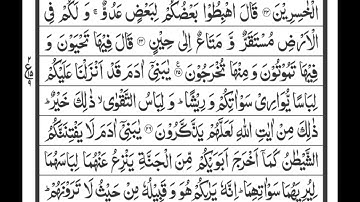 الْخٰسِرِیْنَ ﴿۲۳﴾ قَالَ اهْبِطُوْا بَعْضُكُمْ لِبَعْضٍ عَدُوٌّ ۚ وَ لَكُمْ فِی
الْاَرْضِ مُسْتَقَرٌّ وَّ مَتَاعٌ اِلٰی حِیْنٍ ﴿۲۴﴾ قَالَ فِیْهَا تَحْیَوْنَ وَ
فِیْهَا تَمُوْتُوْنَ وَ مِنْهَا تُخْرَجُوْنَ ﴿۲۵﴾ یٰبَنِیْۤ اٰدَمَ قَدْ اَنْزَلْنَا عَلَیْكُمْ
لِبَاسًا یُّوَارِیْ سَوْاٰتِكُمْ وَ رِیْشًا ؕ وَ لِبَاسُ التَّقْوٰی ۙ ذٰلِكَ خَیْرٌ ؕ
ذٰلِكَ مِنْ اٰیٰتِ اللّٰهِ لَعَلَّهُمْ یَذَّكَّرُوْنَ ﴿۲۶﴾ یٰبَنِیْۤ اٰدَمَ لَا یَفْتِنَنَّكُمُ
الشَّیْطٰنُ كَمَاۤ اَخْرَجَ اَبَوَیْكُمْ مِّنَ الْجَنَّةِ یَنْزِعُ عَنْهُمَا لِبَاسَهُمَا
لِیُرِیَهُمَا سَوْاٰتِهِمَا ؕ اِنَّهٗ یَرٰىكُمْ هُوَ وَ قَبِیْلُهٗ مِنْ حَیْثُ لَا تَرَوْنَهُمْ ؕ